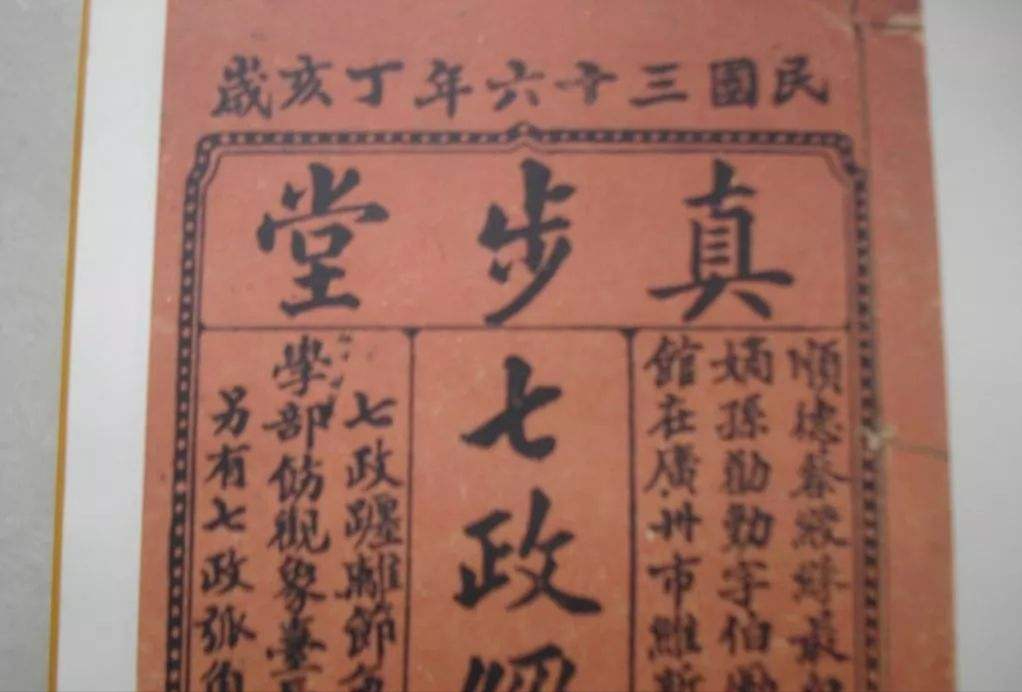 民國三十六年丁亥歲
真步堂
順德蔡
嫡孫勤勤字伯
館在廣州市維新
七政經
七政躔離節
學部飭觀象臺
另有七政弧角